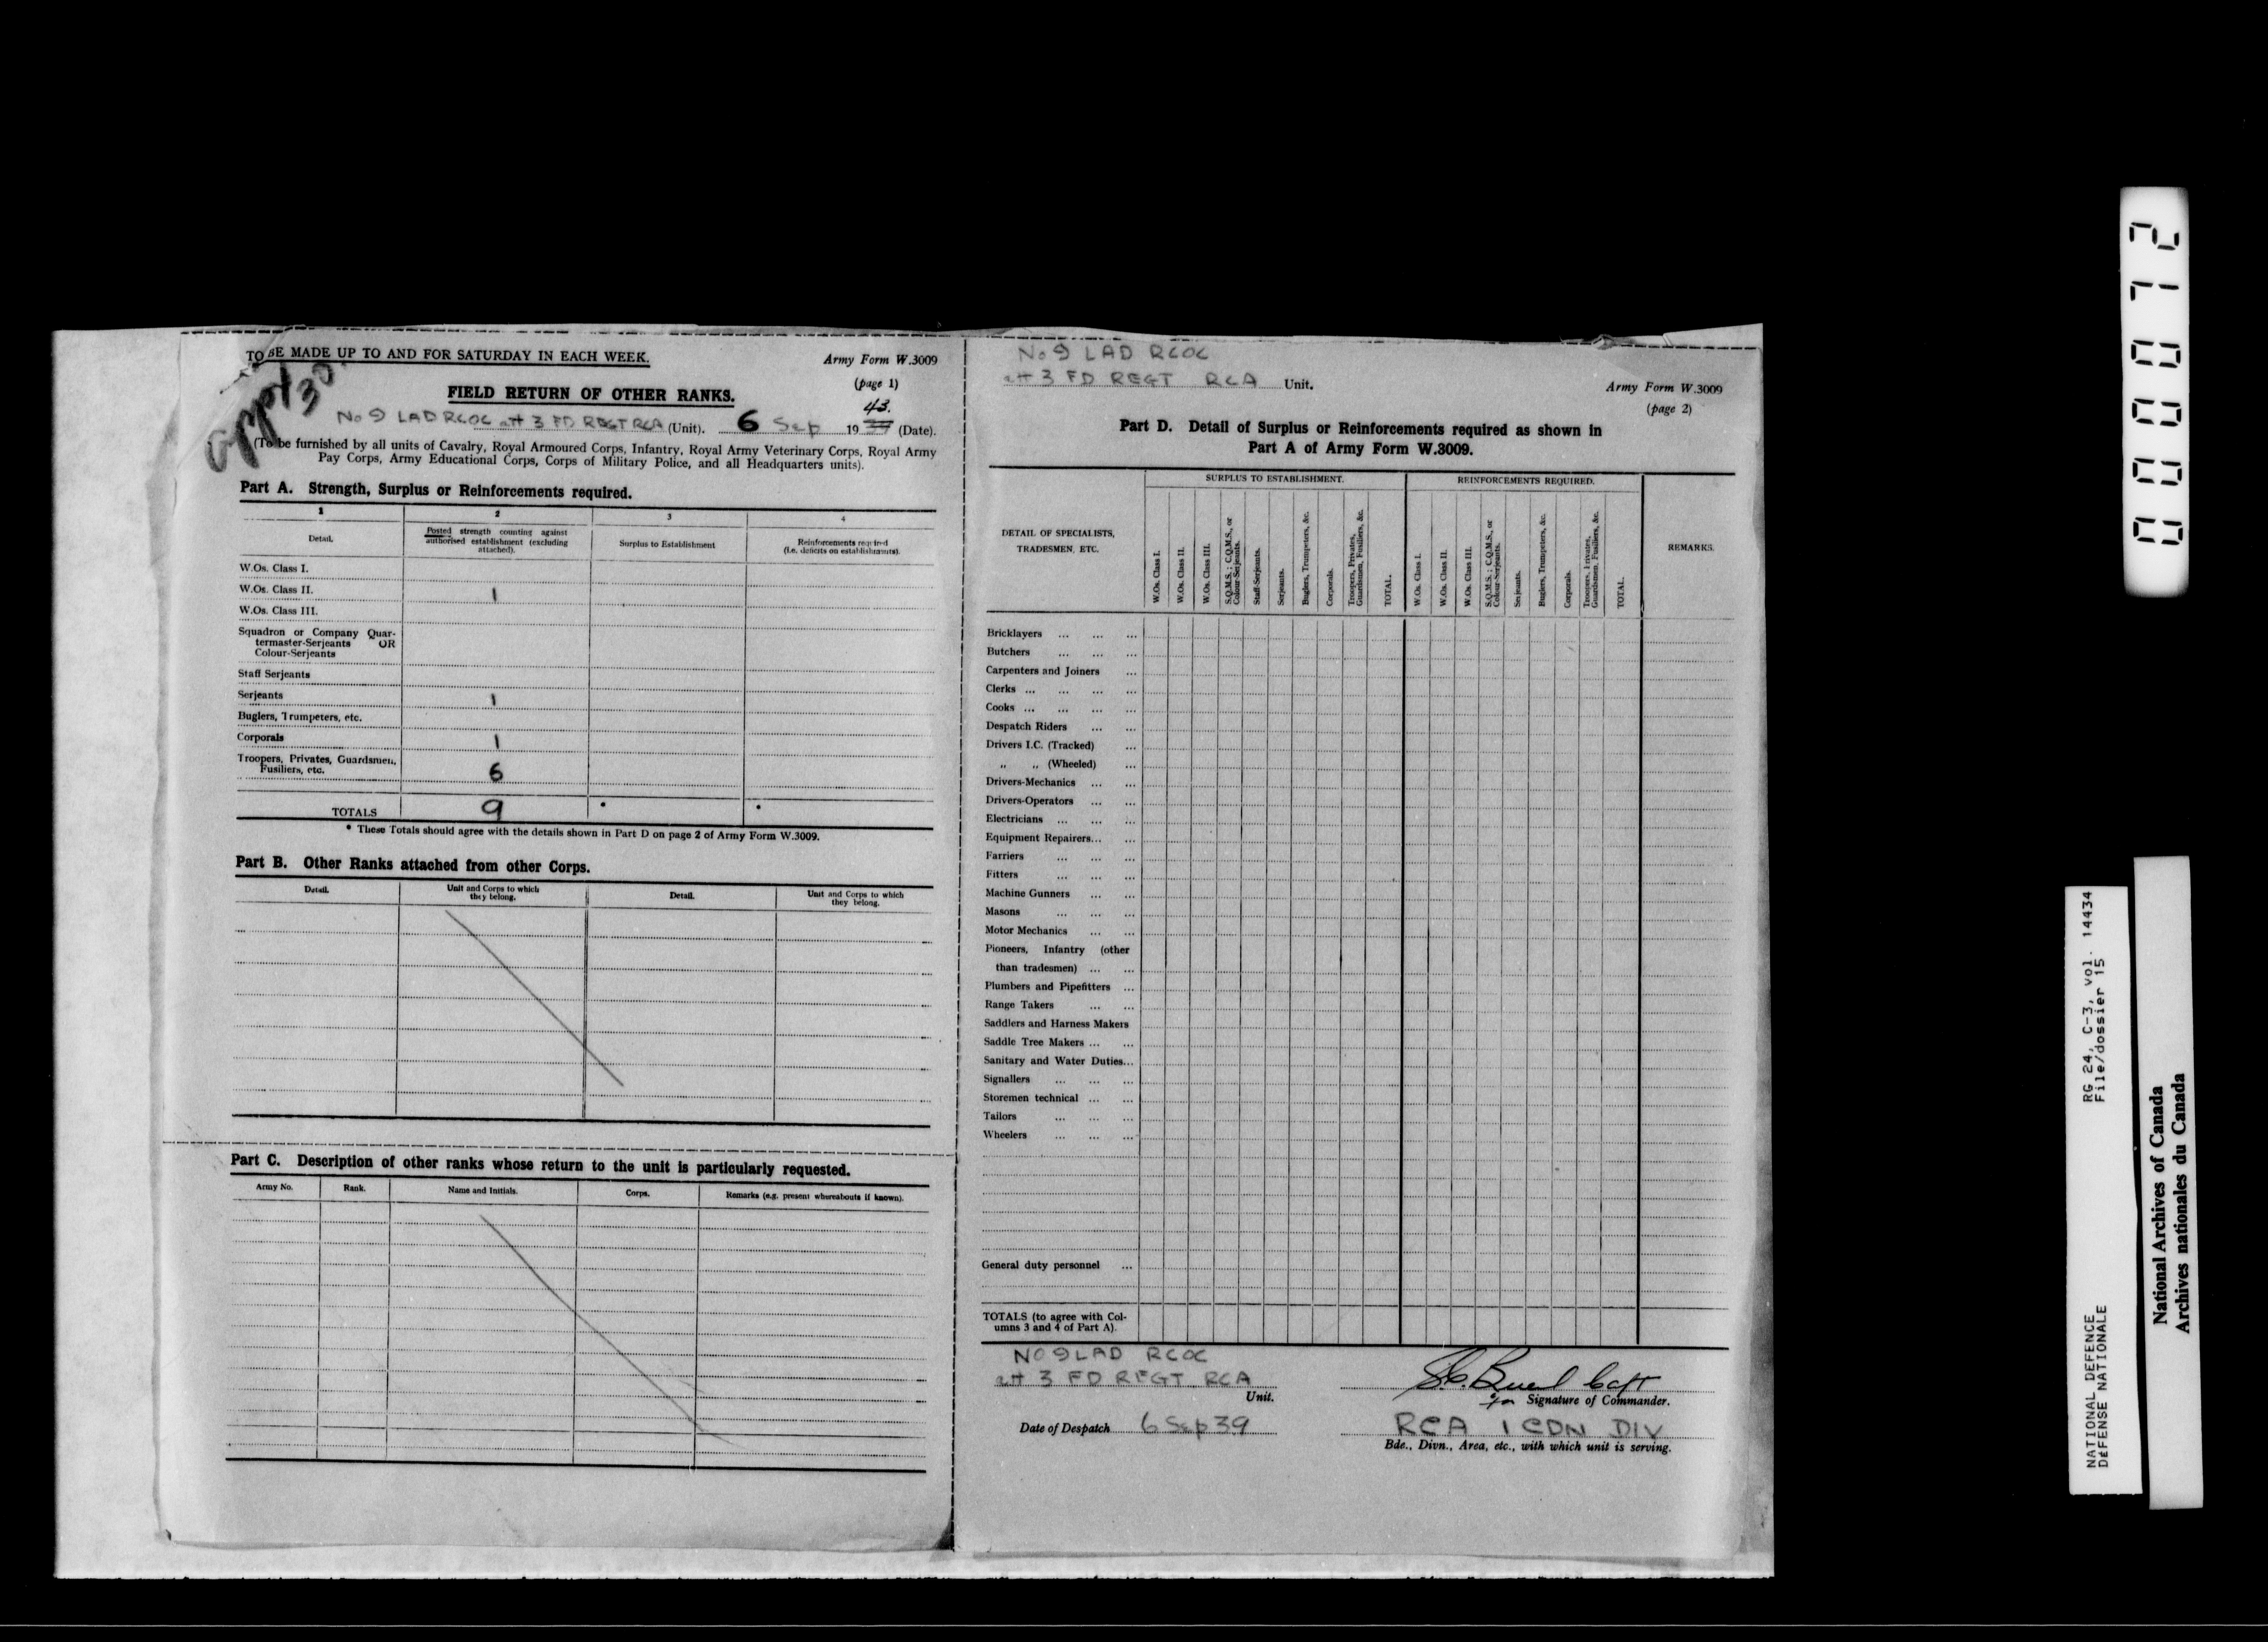 TO BE MADE UP TO AND FOR SATURDAY IN EACH WEEK.
Army Form W.3009
(page 1)
FIELD RETURN OF OTHER RANKS.
43.
No 9 LAD RCOC att 3 FD REGT RCA (Unit). 6 Sep 19 (Date).
(To be furnished by all units of Cavalry, Royal Armoured Corps, Infantry, Royal Army Veterinary Corps, Royal Army
Pay Corps, Army Educational Corps, Corps of Military Police, and all Headquarters units).
Part A. Strength, Surplus or Reinforcements required.
1 2 3 4
Detail.
Posted strength counting against
authorised establishment (excluding
attached).
Surplus to Establishment
Reinforcements required
(i.e. deficits on establishments).
W.Os. Class I.
W.Os. Class II. 1
W.Os. Class III.
Squadron or Company Quar-
termaster-Serjeants OR
Colour-Serjeants
Staff Serjeants
Serjeants 1
Buglers, Trumpeters, etc.
Corporals 1
Troopers, Privates, Guardsmen,
Fusiliers, etc. 6
TOTALS 9 * *
* These Totals should agree with the details shown in Part D on page 2 of Army Form W.3009.
Part B. Other Ranks attached from other Corps.
Detail.
Unit and Corps to which
they belong.
Detail.
Unit and Corps to which
they belong.
Part C. Description of other ranks whose return to the unit is particularly requested.
Army No. Rank. Name and Initials. Corps. Remarks (e.g. present whereabouts if known).
No 9 LAD RCOC
att 3 FD REGT RCA Unit.
Army Form W.3009
(page 2)
Part D. Detail of Surplus or Reinforcements required as shown in
Part A of Army Form W.3009.
DETAIL OF SPECIALISTS,
TRADESMEN, ETC.
SURPLUS TO ESTABLISHMENT.
W.Os. Class I.
W.Os. Class II.
W.Os. Class III.
S.Q.M.S.; C.Q.M.S., or
Colour-Serjeants.
Staff-Serjeants.
Serjeants.
Buglers, Trumpeters, &c.
Corporals.
Troopers, Privates,
Guardsmen, Fusiliers, &c.
TOTAL.
REINFORCEMENTS REQUIRED.
W.Os. Class I.
W.Os. Class II.
W.Os. Class III.
S.Q.M.S.; C.Q.M.S., or
Colour-Serjeants.
Serjeants.
Buglers, Trumpeters, &c.
Corporals.
Troopers, Privates,
Guardsmen, Fusiliers, &c.
TOTAL.
REMARKS.
Bricklayers ... ... ...
Butchers ... ... ...
Carpenters and Joiners ...
Clerks ... ... ... ...
Cooks ... ... ... ...
Despatch Riders ... ...
Drivers I.C. (Tracked) ...
„ „ (Wheeled) ...
Drivers-Mechanics ... ...
Drivers-Operators ... ...
Electricians ... ... ...
Equipment Repairers... ...
Farriers ... ... ...
Fitters ... ... ...
Machine Gunners ... ...
Masons ... ... ...
Motor Mechanics ... ...
Pioneers, Infantry (other
than tradesmen) ... ...
Plumbers and Pipefitters ...
Range Takers ... ...
Saddlers and Harness Makers
Saddle Tree Makers ... ...
Sanitary and Water Duties...
Signallers ... ... ...
Storemen technical ... ...
Tailors ... ... ...
Wheelers ... ... ...
General duty personnel ...
TOTALS (to agree with Col-
umns 3 and 4 of Part A).
No 9 LAD RCOC
att 3 FD REGT RCA
Unit.
Capt
for Signature of Commander.
Date of Despatch 6 Sep 39
RCA 1 CDN DIV
Bde., Divn., Area, etc., with which unit is serving.
000072
RG 24, C-3, vol. 14434
File/dossier 15
NATIONAL DEFENCE
DÉFENSE NATIONALE
National Archives of Canada
Archives nationales du Canada